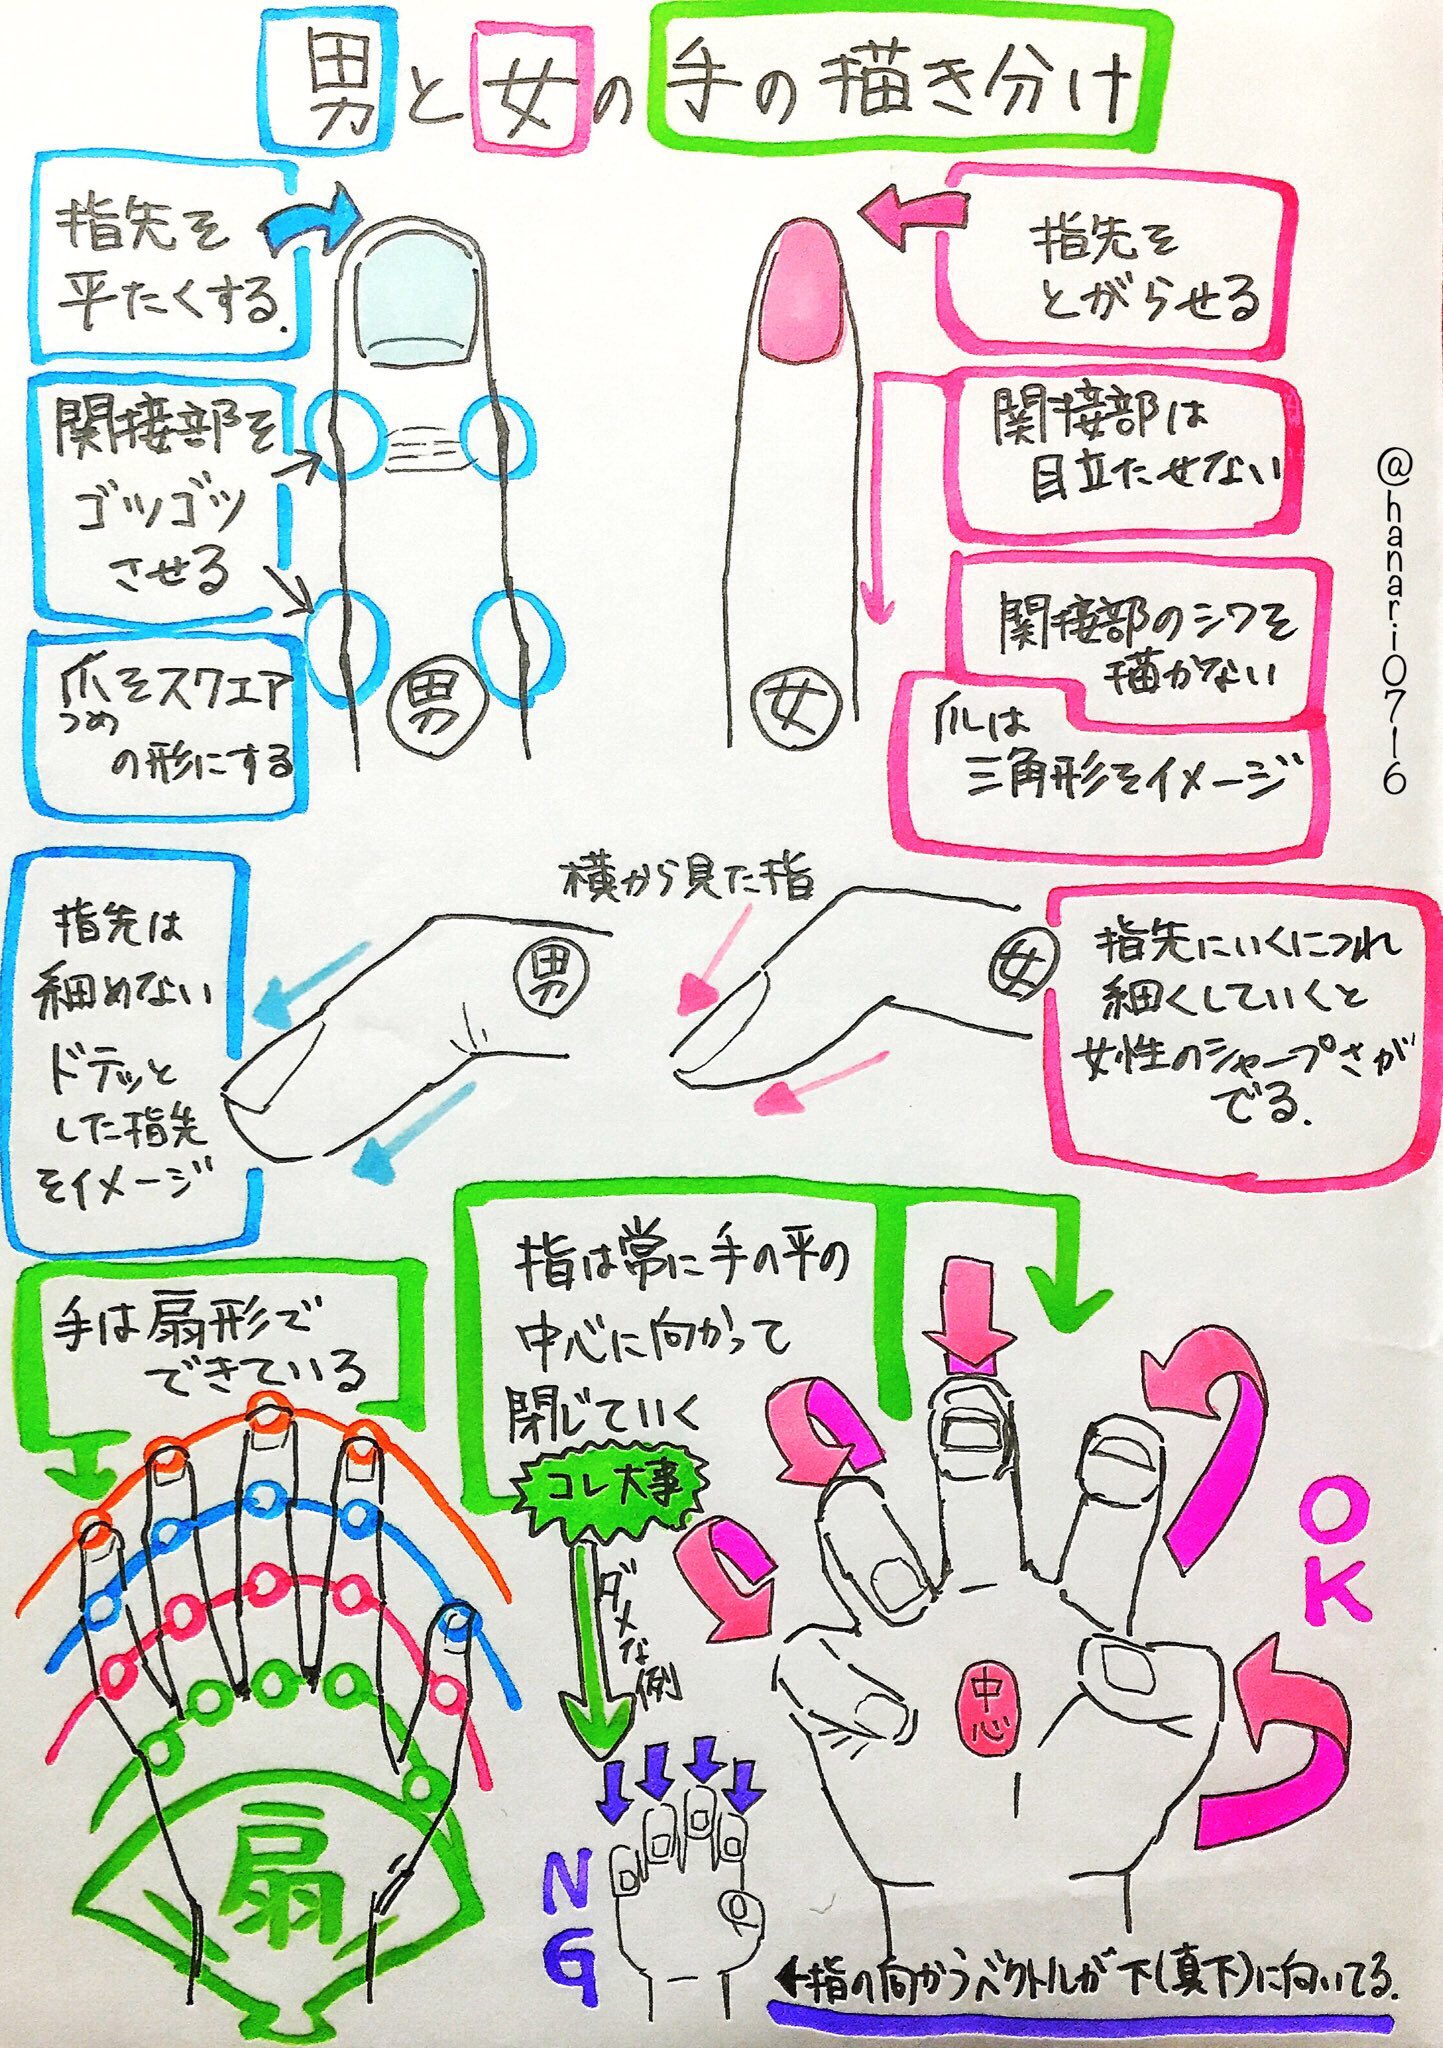 男と女の手の描き分け
指先を
平たくする.
関接部を
ゴツゴツ
させる
爪をスクエア
つめ
の形にする
男
指先を
とがらせる
関接部は
目立たせない
関接部のシワを
描かない
爪は
三角形をイメージ
女
@hanari0716
横から見た指
指先は
細めない
ドテッと
した指先
をイメージ
男
女
指先にいくにつれ
細くしていくと
女性のシャープさが
でる.
手は扇形で
できている
扇
指は常に手の平の
中心に向かって
閉じていく
コレ大事
ダメな例
中心
OK
NG
←指の向かうベクトルが下(真下)に向いてる.